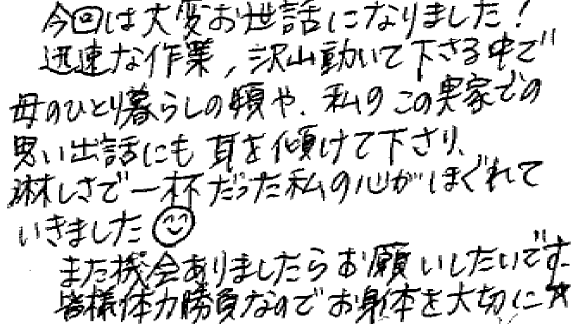 今回は大変お世話になりました!
迅速な作業、沢山動いて下さる中で
母のひとり暮らしの頃や、私のこの実家での
思い出話にも耳を傾けて下さり、
淋しさで一杯だった私の心がほぐれて
いきました☺
また機会ありましたらお願いしたいです.
皆様体力勝負なのでお身体を大切に☆